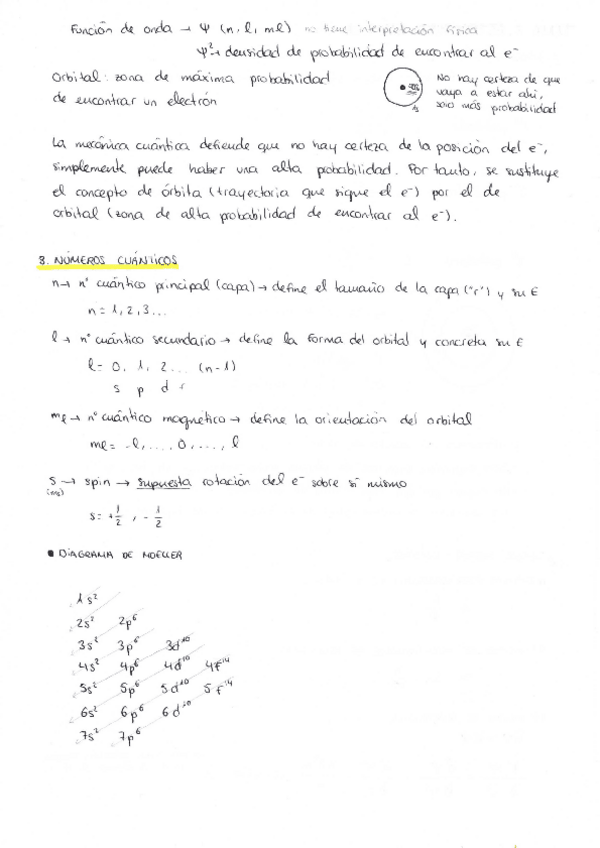 Función de onda → Ψ (n, l, ml) no tiene interpretación física
Ψ² → densidad de probabilidad de encontrar al e⁻
Orbital: zona de máxima probabilidad
de encontrar un electrón
No hay certeza de que
vaya a estar ahí,
solo más probabilidad
1s
La mecánica cuántica defiende que no hay certeza de la posición del e⁻,
simplemente puede haber una alta probabilidad. Por tanto, se sustituye
el concepto de órbita (trayectoria que sigue el e⁻) por el de
orbital (zona de alta probabilidad de encontrar al e⁻).
3. NÚMEROS CUÁNTICOS
n → nº cuántico principal (capa) → define el tamaño de la capa ("r") y su E
n = 1, 2, 3...
l → nº cuántico secundario → define la forma del orbital y concreta su E
l = 0, 1, 2... (n-1)
s p d
ml → nº cuántico magnético → define la orientación del orbital
ml = -l, ..., 0, ..., l
s → spin → supuesta rotación del e⁻ sobre sí mismo
(ms)
s = +1/2, -1/2
• DIAGRAMA DE MOELLER
1s²
2s² 2p⁶
3s² 3p⁶ 3d¹⁰
4s² 4p⁶ 4d¹⁰ 4f¹⁴
5s² 5p⁶ 5d¹⁰ 5f¹⁴
6s² 6p⁶ 6d¹⁰
7s² 7p⁶